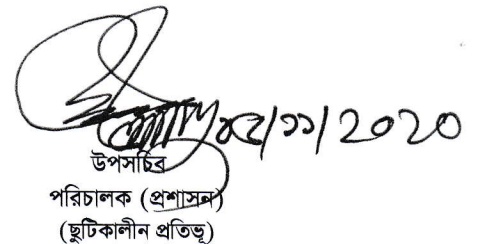 /১১/২০২০
উপসচিব
পরিচালক (প্রশাসন)
(ছুটিকালীন প্রতিভূ)